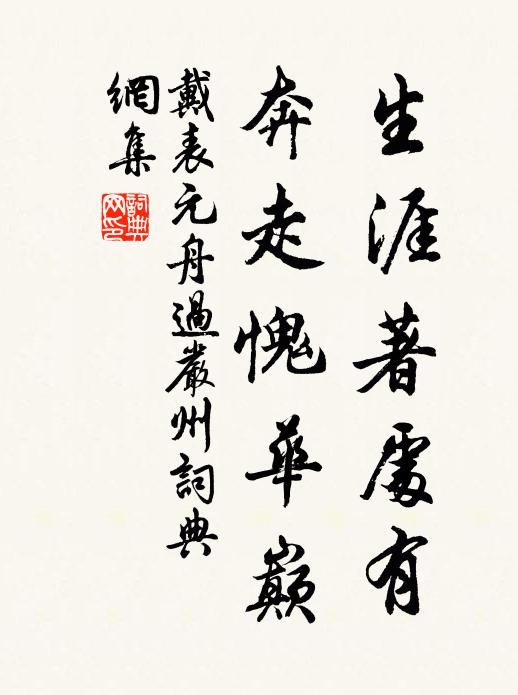 生涯著處有
奔走愧華巔
戴表元舟過嚴州詞典
網集
詞典
网印